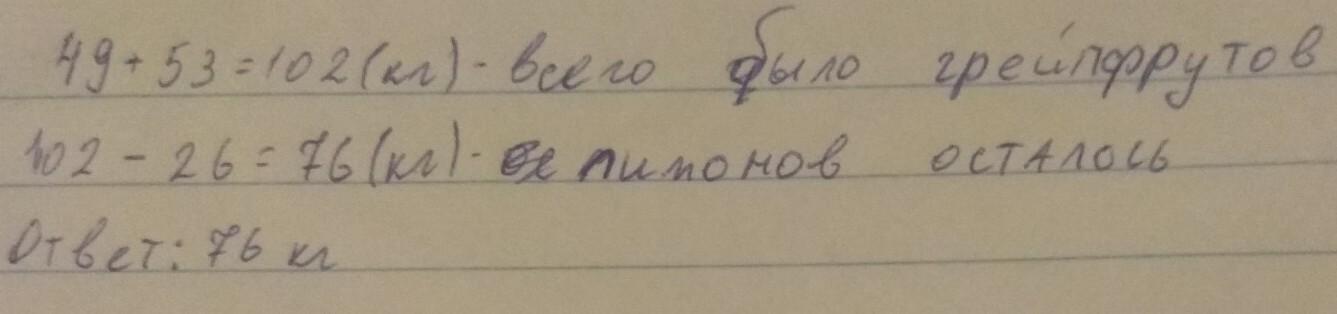 49+53=102(кг)-всего было грейпфрутов
102-26=76(кг)- лимонов осталось
Ответ: 76 кг